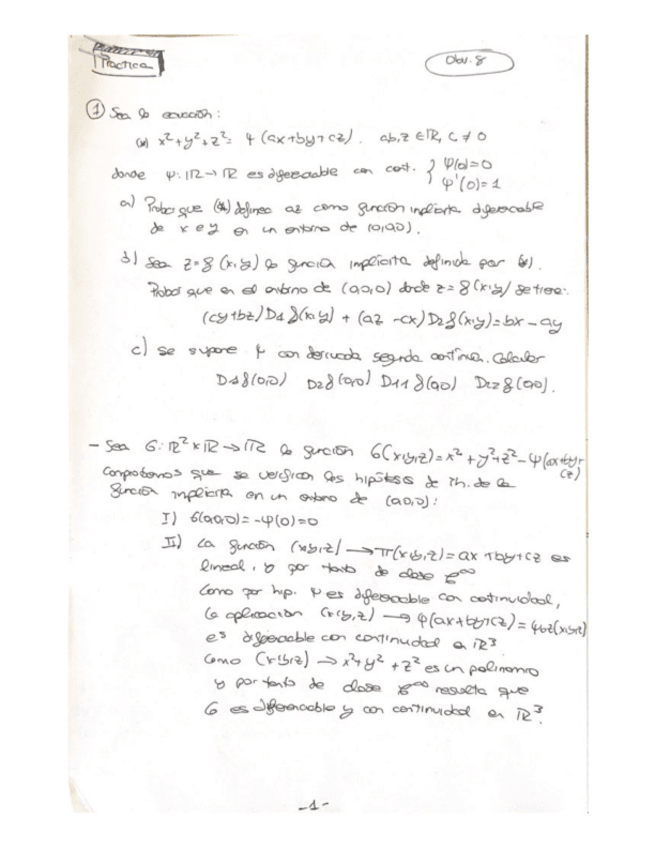 Practica
Obv. 8
① Sea la ecuación:
(*) x²+y²+z² = ψ(ax+by+cz). a,b,z ∈ ℝ, c ≠ 0
donde ψ: ℝ → ℝ es diferenciable con cont. { ψ(0)=0
ψ'(0)=1
a) Probar que (*) define a z como función implícita diferenciable
de x e y en un entorno de (0,0,0).
b) Sea z=g(x,y) la función implícita definida por (*).
Probar que en el entorno de (0,0,0) donde z=g(x,y) se tiene:
(cy+bz)D1g(x,y) + (az-cx)D2g(x,y)=bx-ay
c) Se supone ψ con derivada segunda continua. Calcular
D1g(0,0) D2g(0,0) D11g(0,0) D12g(0,0).
- Sea G: ℝ²×ℝ → ℝ la función G(x,y,z)=x²+y²+z²-ψ(ax+by+
cz)
Comprobamos que se verifican las hipótesis de Th. de la
función implícita en un entorno de (0,0,0):
I) G(0,0,0)=-ψ(0)=0
II) La función (x,y,z) → π(x,y,z)=ax+by+cz es
lineal, y por tanto de clase C^∞
Como por hip. ψ es diferenciable con continuidad,
la aplicación (x,y,z) → ψ(ax+by+cz)=ψ∘π(x,y,z)
es diferenciable con continuidad en ℝ³
Como (x,y,z) → x²+y²+z² es un polinomio
y por tanto de clase C^∞ resulta que
G es diferenciable y con continuidad en ℝ³.
-1-